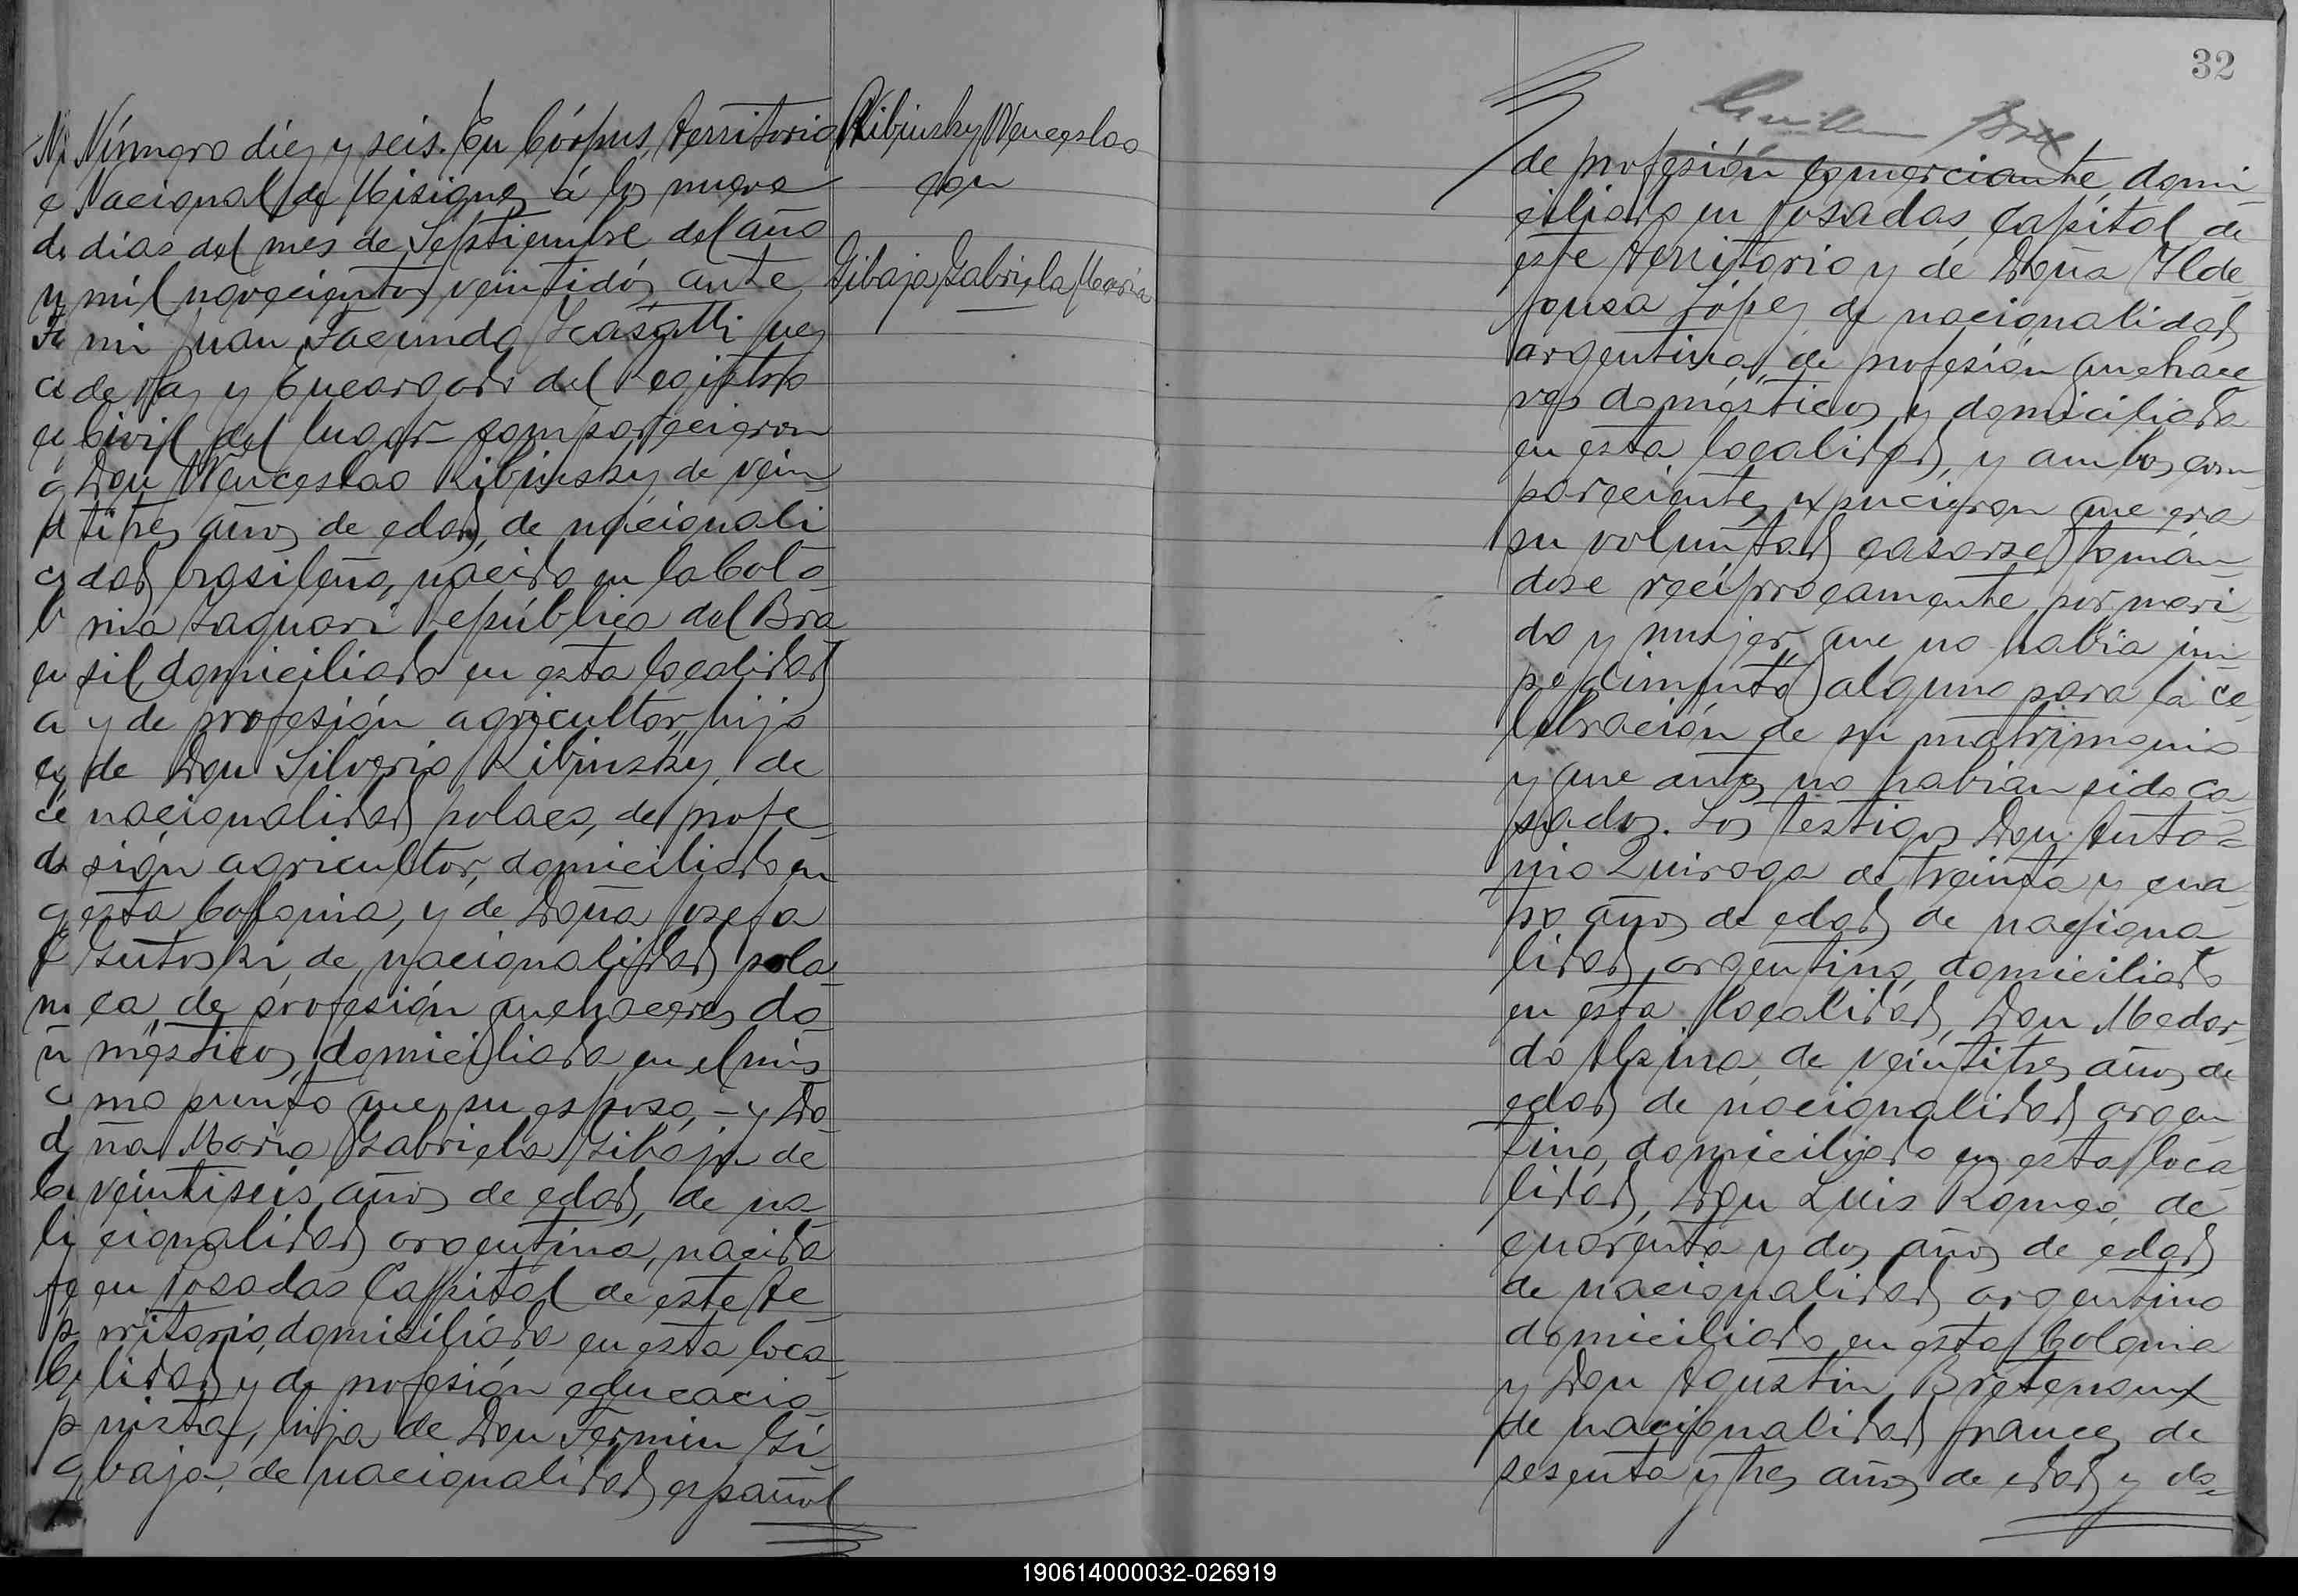 Número diez y seis. En Córpus, territorio
Nacional de Misiones á los nueve
días del mes de Septiembre del año
mil novecientos veintidós, ante
mi Juan Facundo Juez
de Paz y Encargado del Registro
Civil del lugar comparecieron
Don Wenceslao Kibinsky, de vein
titres años de edad, de nacionali
dad brasileño, nacido en la Colo
nia Jaguari República del Bra
sil, domiciliado en esta localidad
y de profesión agricultor, hijo
de Don Silverio Kibinsky, de
nacionalidad polaca, de profe
sión agricultor, domiciliado en
esta Colonia, y de Doña Josefa
Gutoski, de nacionalidad pola
ca, de profesión quehaceres do
mésticos, domiciliada en el mis
mo punto que su esposo, - y Do
ña Maria Gabriela Gibaja de
veintiseis años de edad, de na
cionalidad argentina, nacida
en Posadas Capital de este te
rritorio, domiciliada en esta loca
lidad y de profesión educacio
nista, hija de Don Fermin Gi
baja, de nacionalidad español
Kibinsky Wenceslao
con
Gibaja Gabriela Maria
32
de profesión comerciante, domi
ciliado en Posadas, Capital de
este territorio y de Doña Ilde
fonsa López, de nacionalidad
argentina, de profesión quehace
res domésticos y domiciliada
en esta localidad, y ambos com
parecientes expucieron que era
su voluntad casarse, tomán
dose recíprocamente por mari
do y mujer, que no habia im
pedimento alguno para la ce
lebración de su matrimonio
y que antes no habian sido ca
sados. Los testigos Don Anto
nio Quiroga de treinta y cua
tro años de edad, de naciona
lidad argentino, domiciliado
en esta localidad, Don Medar
do Alzina, de veintitres años de
edad, de nacionalidad argen
tino, domiciliado en esta loca
lidad, Don Luis Romeo, de
cuarenta y dos años de edad
de nacionalidad argentino
domiciliado en esta Colonia
y Don Agustin Bretenoux
de nacionalidad frances, de
sesenta y tres años de edad y do
190614000032-026919